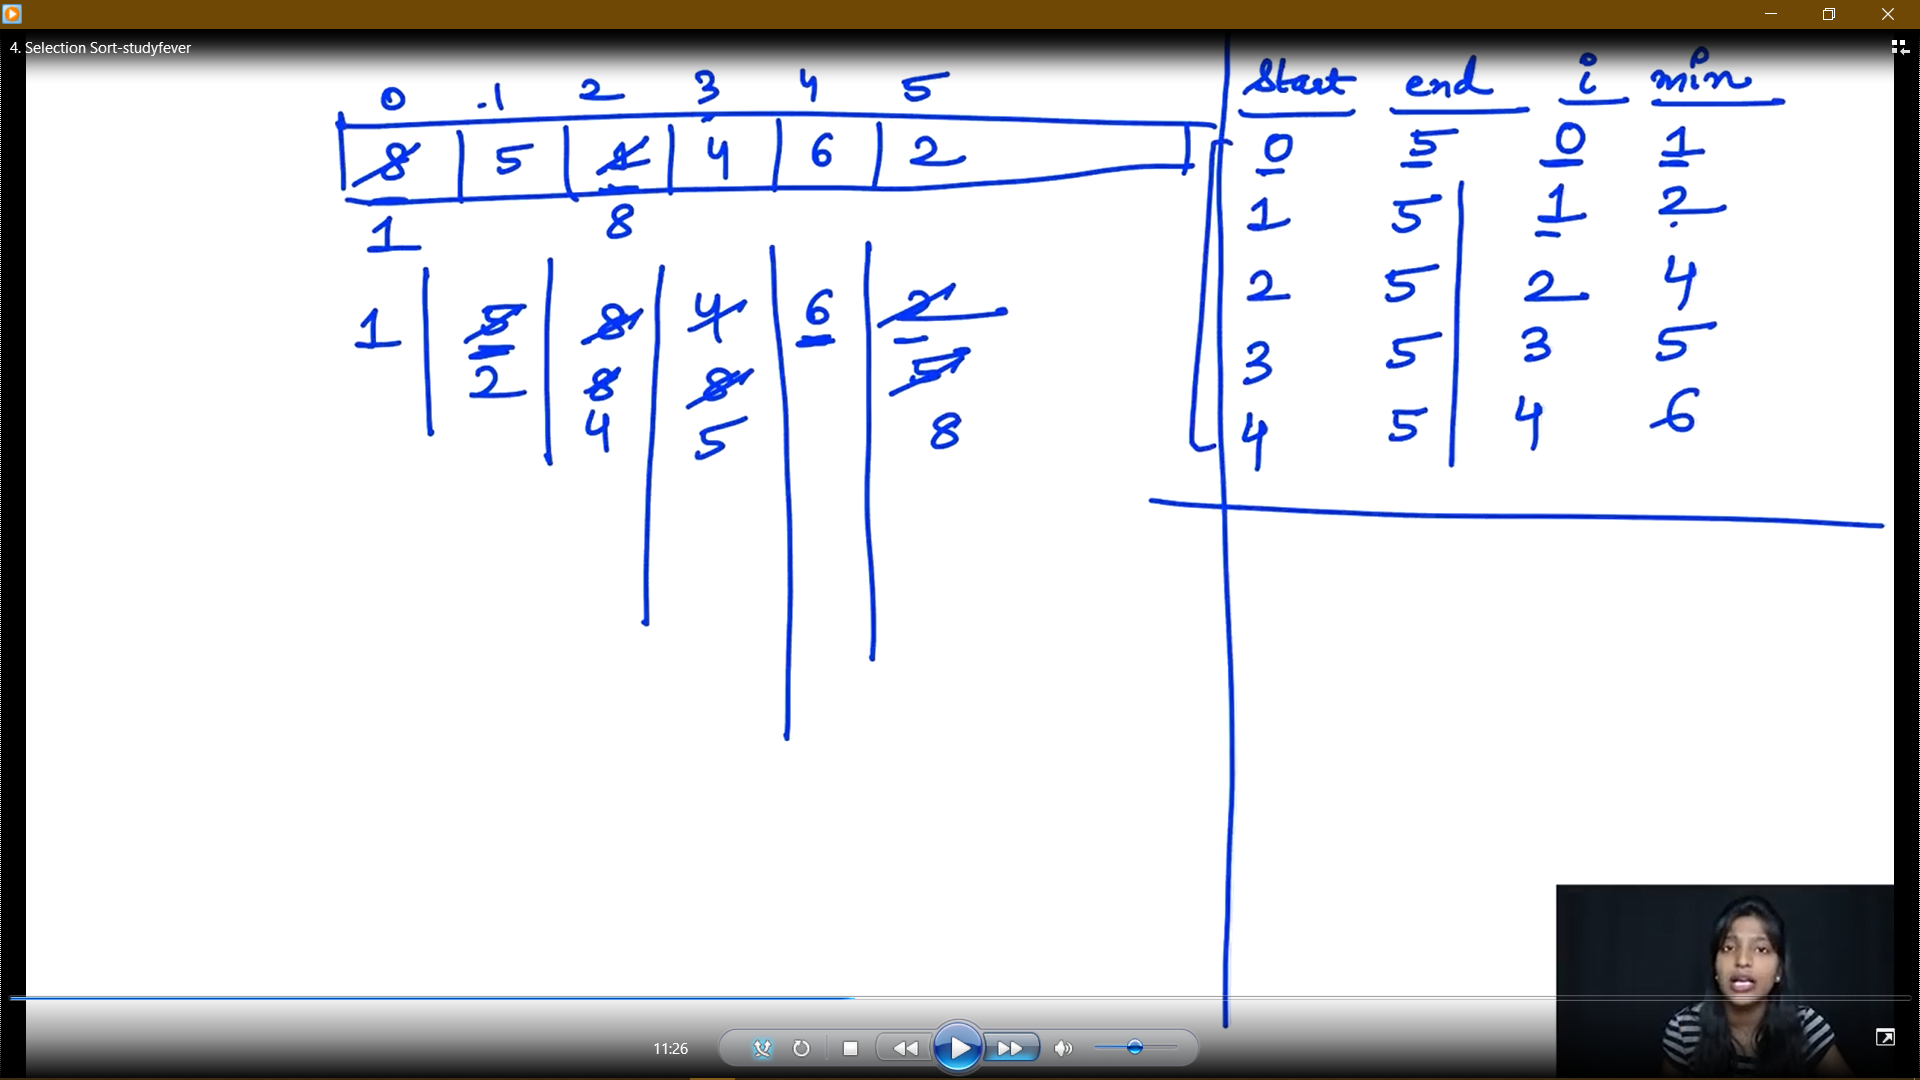 4. Selection Sort-studyfever
0 1 2 3 4 5
8 5 1 4 6 2
1 8
1 5 8 4 6 2
2 8 8 5
4 5 8
Start end i min
0 5 0 1
1 5 1 2
2 5 2 4
3 5 3 5
4 5 4 6
11:26